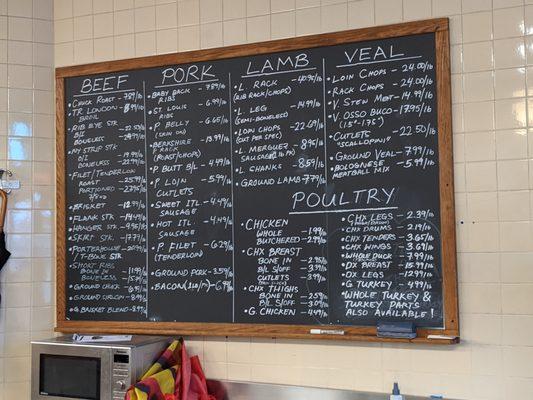 BEEF
CHUCK ROAST - 7.89/lb
TR LONDON - 8.99/lb
BROIL
RIB EYE STK
B/I - 22.50/lb
BONELESS
NY STRIP STK
B/I - 19.99/lb
BONELESS - 22.99/lb
FILET/TENDERLOIN
ROAST - 25.99/lb
PORTIONED
BRISKET
FLANK STK
HANGER STK - 9.95/lb
SKIRT STK
PORTERHOUSE
/T-BONE STK
SHORT RIBS
BONE IN
BONELESS
GROUND CHCK
GROUND SIRLOIN
G. BASKET BLEND - 8.99/lb
PORK
BABY BACK - 7.89/lb
RIBS
ST LOUIS - 6.99/lb
RIBS
P BELLY - 6.65/lb
(SKIN ON)
BERKSHIRE
P RACK - 13.99/lb
(ROAST/CHOPS)
P BUTT B/I - 4.49/lb
P. LOIN - 5.99/lb
CUTLETS
SWEET ITL - 4.49/lb
SAUSAGE
HOT ITL - 4.49/lb
SAUSAGE
P. FILET - 6.29/lb
(TENDERLOIN)
GROUND PORK - 3.59/lb
BACON
LAMB
L RACK - 40.95/lb
(RIB RACK/CHOPS)
L LEG - 14.99/lb
(SEMI-BONELESS)
LOIN CHOPS - 22.69/lb
(CUT PER SPEC)
L MERGUEZ - 8.95/lb
SAUSAGE
L SHANKS - 8.59/lb
GROUND LAMB - 7.79/lb
VEAL
LOIN CHOPS - 24.00/lb
RACK CHOPS - 24.00/lb
V. STEW MEAT - 14.99/lb
V. OSSO BUCO - 17.95/lb
CUTLETS - 22.50/lb
"SCALLOPPINI"
GROUND VEAL - 7.99/lb
BOLOGNESE - 5.99/lb
MEATBALL MIX
POULTRY
CHICKEN
WHOLE - 1.99/lb
BUTCHERED - 2.99/lb
CHX BREAST
BONE IN - 2.95/lb
B/L S/OFF - 3.99/lb
CUTLETS - 3.99/lb
CHX THIGHS
BONE IN - 2.59/lb
B/L S/OFF - 3.09/lb
G. CHICKEN - 4.49/lb
CHX LEGS - 2.39/lb
CHX DRUMS - 2.19/lb
CHX TENDERS - 3.65/lb
CHX WINGS - 3.67/lb
WHOLE DUCK - 7.99/lb
DX BREAST - 15.99/lb
DX LEGS - 12.99/lb
G TURKEY - 4.99/lb
WHOLE TURKEY &
TURKEY PARTS
ALSO AVAILABLE!